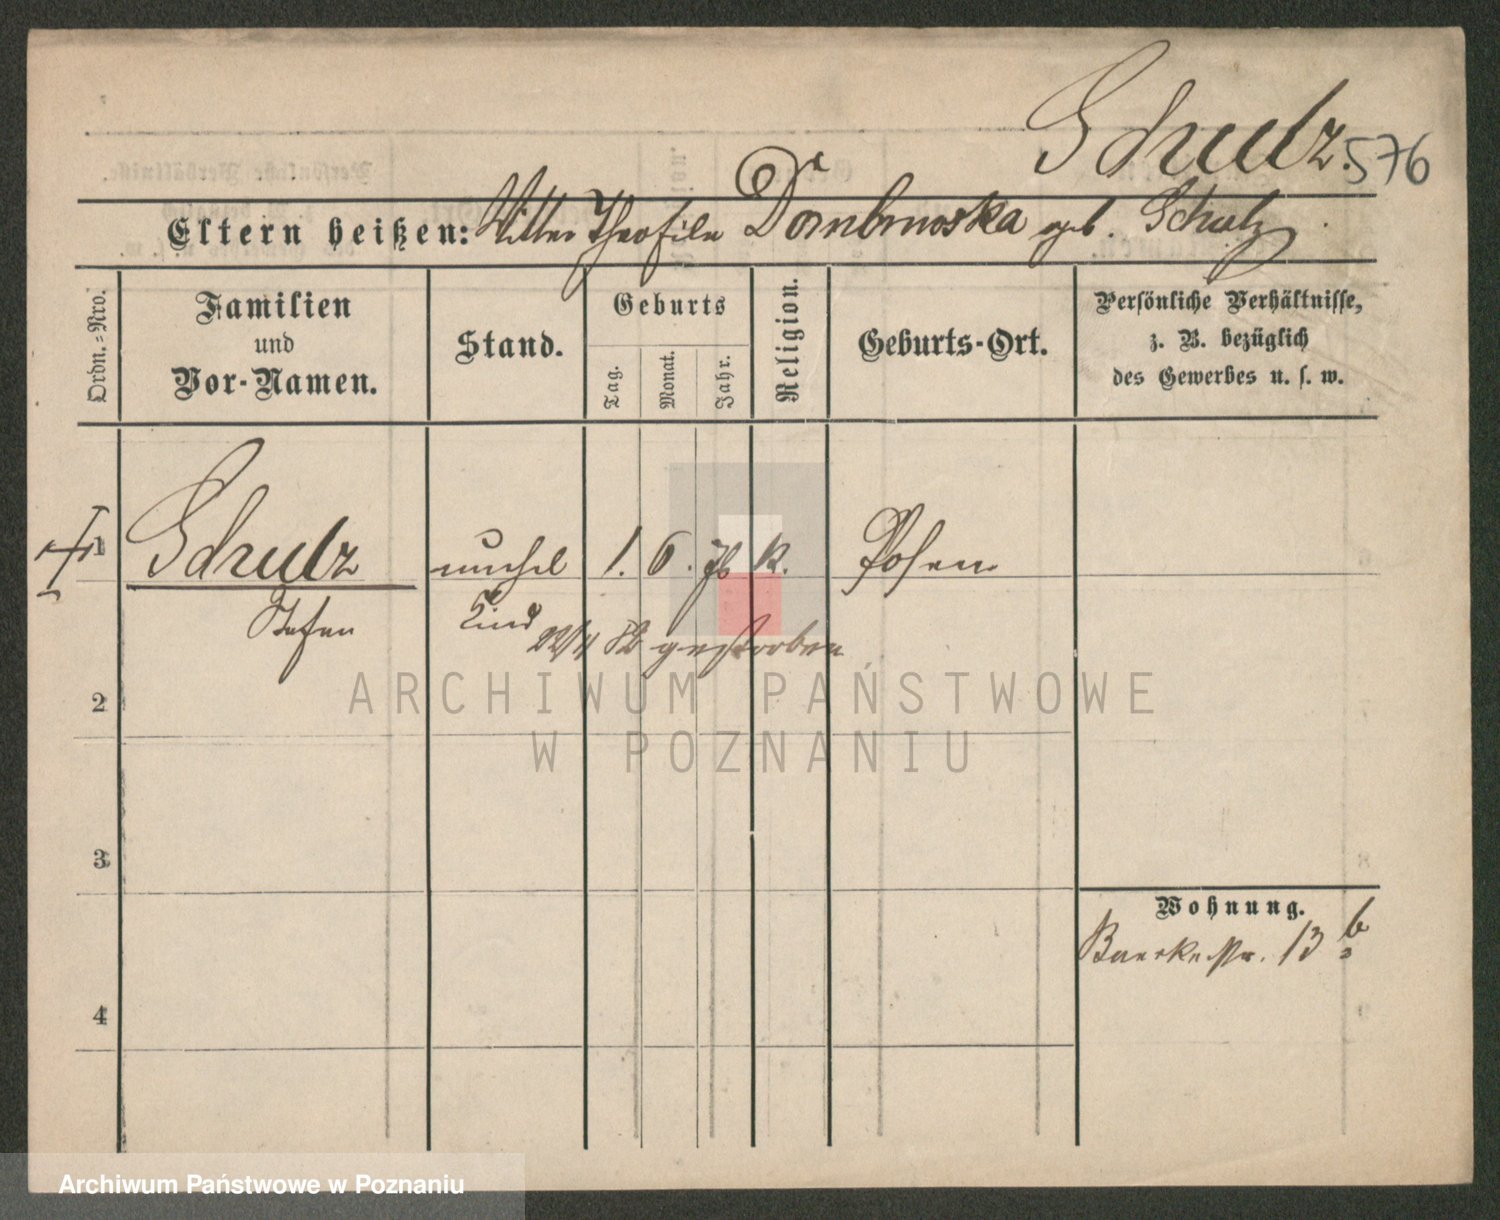 Schulz.
576
Eltern heißen: Mutter Theofila Dombrowska geb. Schulz
Ordn.-Nro.
Familien
und
Vor-Namen.
Stand.
Geburts
Tag.
Monat.
Jahr.
Religion.
Geburts-Ort.
Persönliche Verhältnisse,
z. B. bezüglich
des Gewerbes u. s. w.
1 Schulz unehel 1. 6. k. Posen
Stefan Kind
22/4 82 gestorben
2
3
4
Wohnung.
13 b
ARCHIWUM PAŃSTWOWE
W POZNANIU
Archiwum Państwowe w Poznaniu